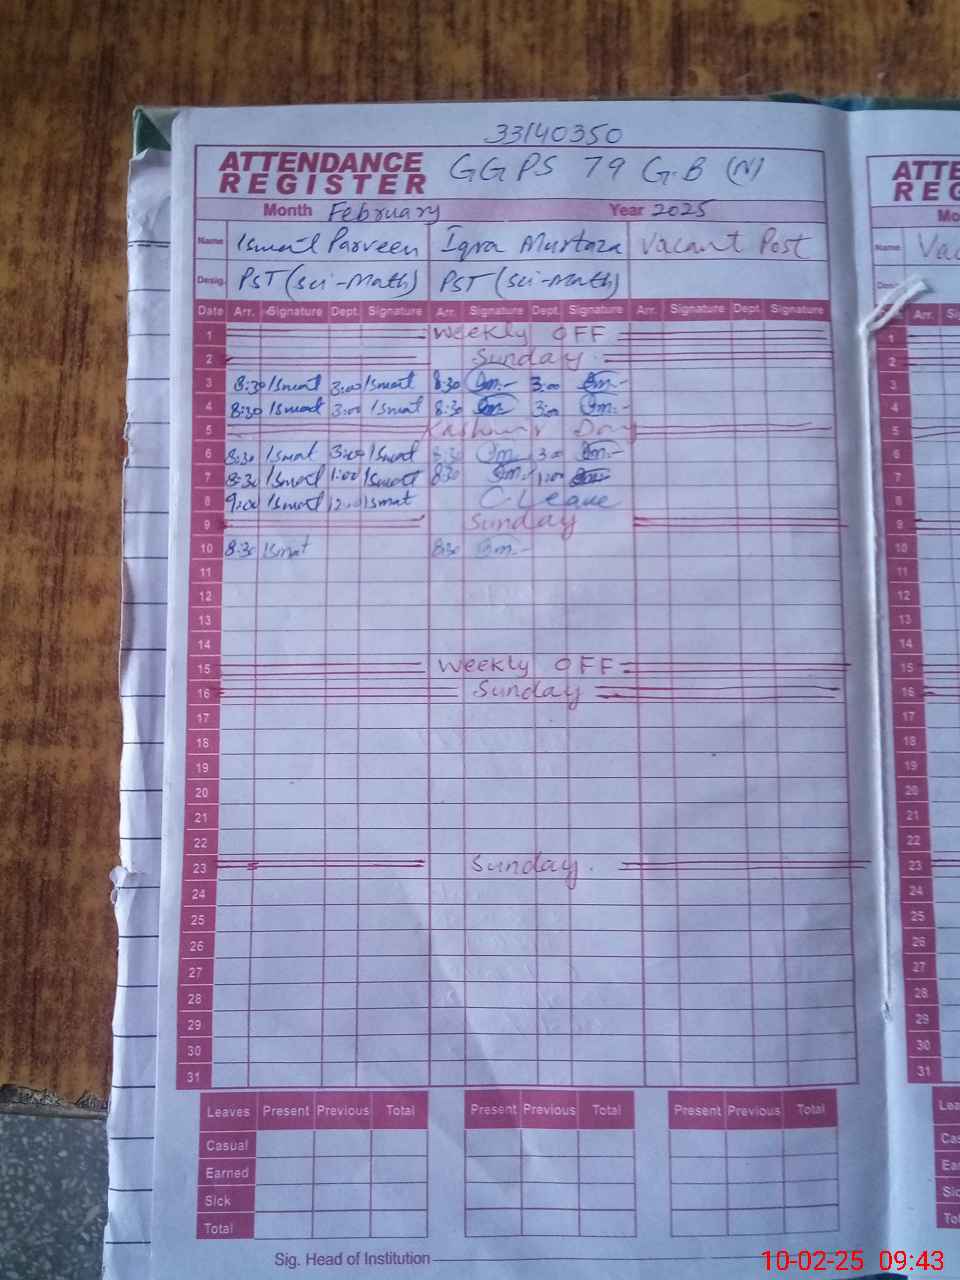 33140350
ATTENDANCE REGISTER GGPS 79 G.B (N)
Month February Year 2025
Name Ismat Parveen Iqra Murtaza Vacant Post
Desig. PST (Sci-Math) PST (Sci-Math)
Date Arr. Signature Dept. Signature Arr. Signature Dept. Signature Arr. Signature Dept. Signature
1 Weekly OFF
2 Sunday
3 8:30 Ismat 3:00 Ismat 8:30 3:00
4 8:30 Ismat 3:00 Ismat 8:30 3:00
5 Kashmir Day
6 8:30 Ismat 3:00 Ismat 8:30 3:00
7 8:30 Ismat 1:00 Ismat 8:30 1:00
8 9:00 Ismat 12:00 Ismat C-Leave
9 Sunday
10 8:30 Ismat 8:30
11
12
13
14
15 Weekly OFF
16 Sunday
17
18
19
20
21
22
23 Sunday
24
25
26
27
28
29
30
31
Leaves Present Previous Total Present Previous Total Present Previous Total
Casual
Earned
Sick
Total
Sig. Head of Institution
ATTE
REG
Mo
Name Vac
Arr. Signa
1
2
3
4
5
6
7
8
9
10
11
12
13
14
15
16
17
18
19
20
21
22
23
24
25
26
27
28
29
30
31
Lea
Cas
Ea
Sic
To
10-02-25 09:43